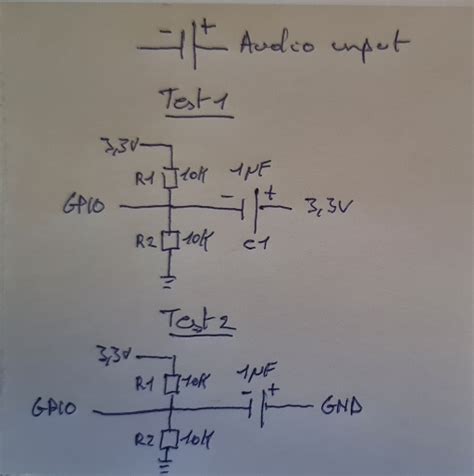 - + Audio input
Test 1
3,3V
R1 10K 1µF
GPIO - + 3,3V
R2 10K C1
Test 2
3,3V
R1 10K 1µF
GPIO - + GND
R2 10K